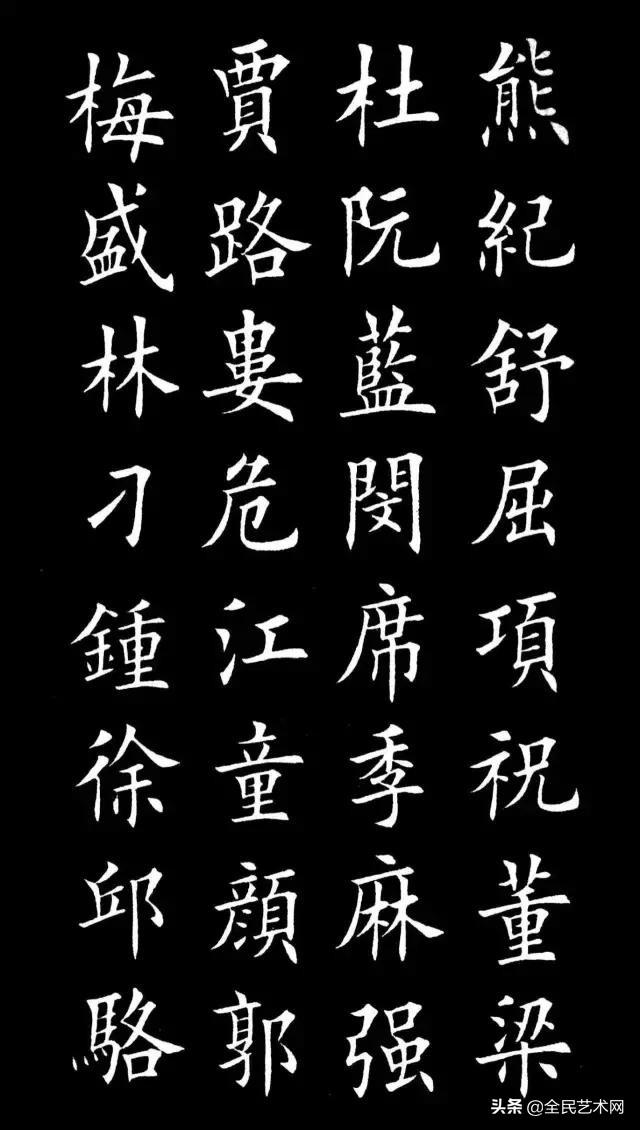 熊紀舒屈項祝董梁
杜阮藍閔席季麻强
賈路婁危江童顔郭
梅盛林刁鍾徐邱駱
头条 @全民艺术网